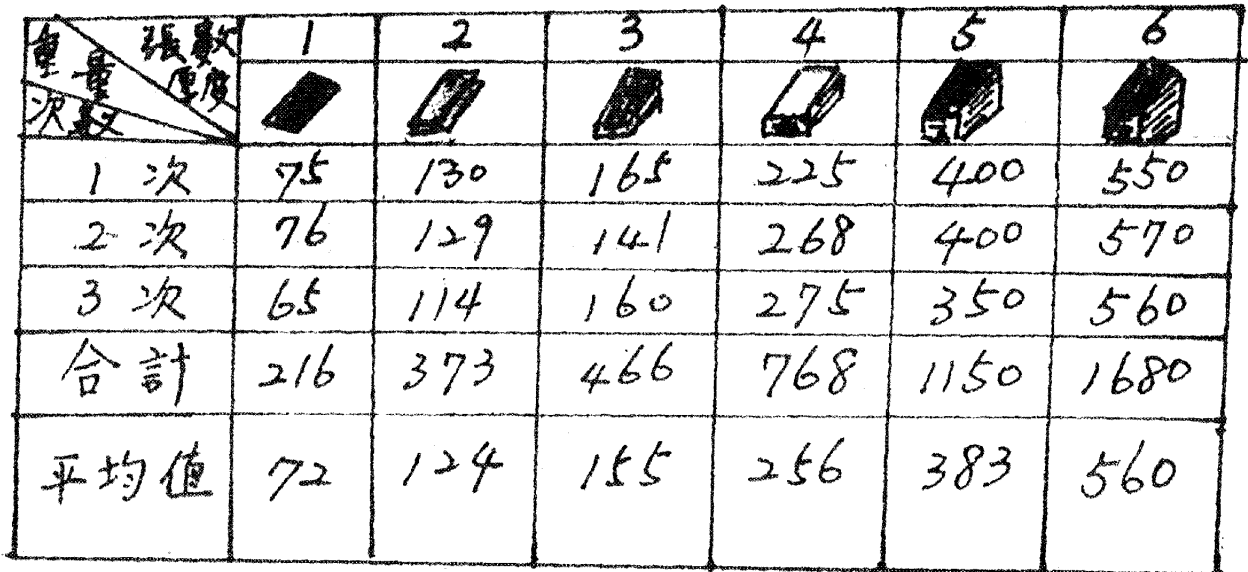 張數 1 2 3 4 5 6
重量 厚度
次數
1次 75 130 165 225 400 550
2次 76 129 141 268 400 570
3次 65 114 160 275 350 560
合計 216 373 466 768 1150 1680
平均值 72 124 155 256 383 560